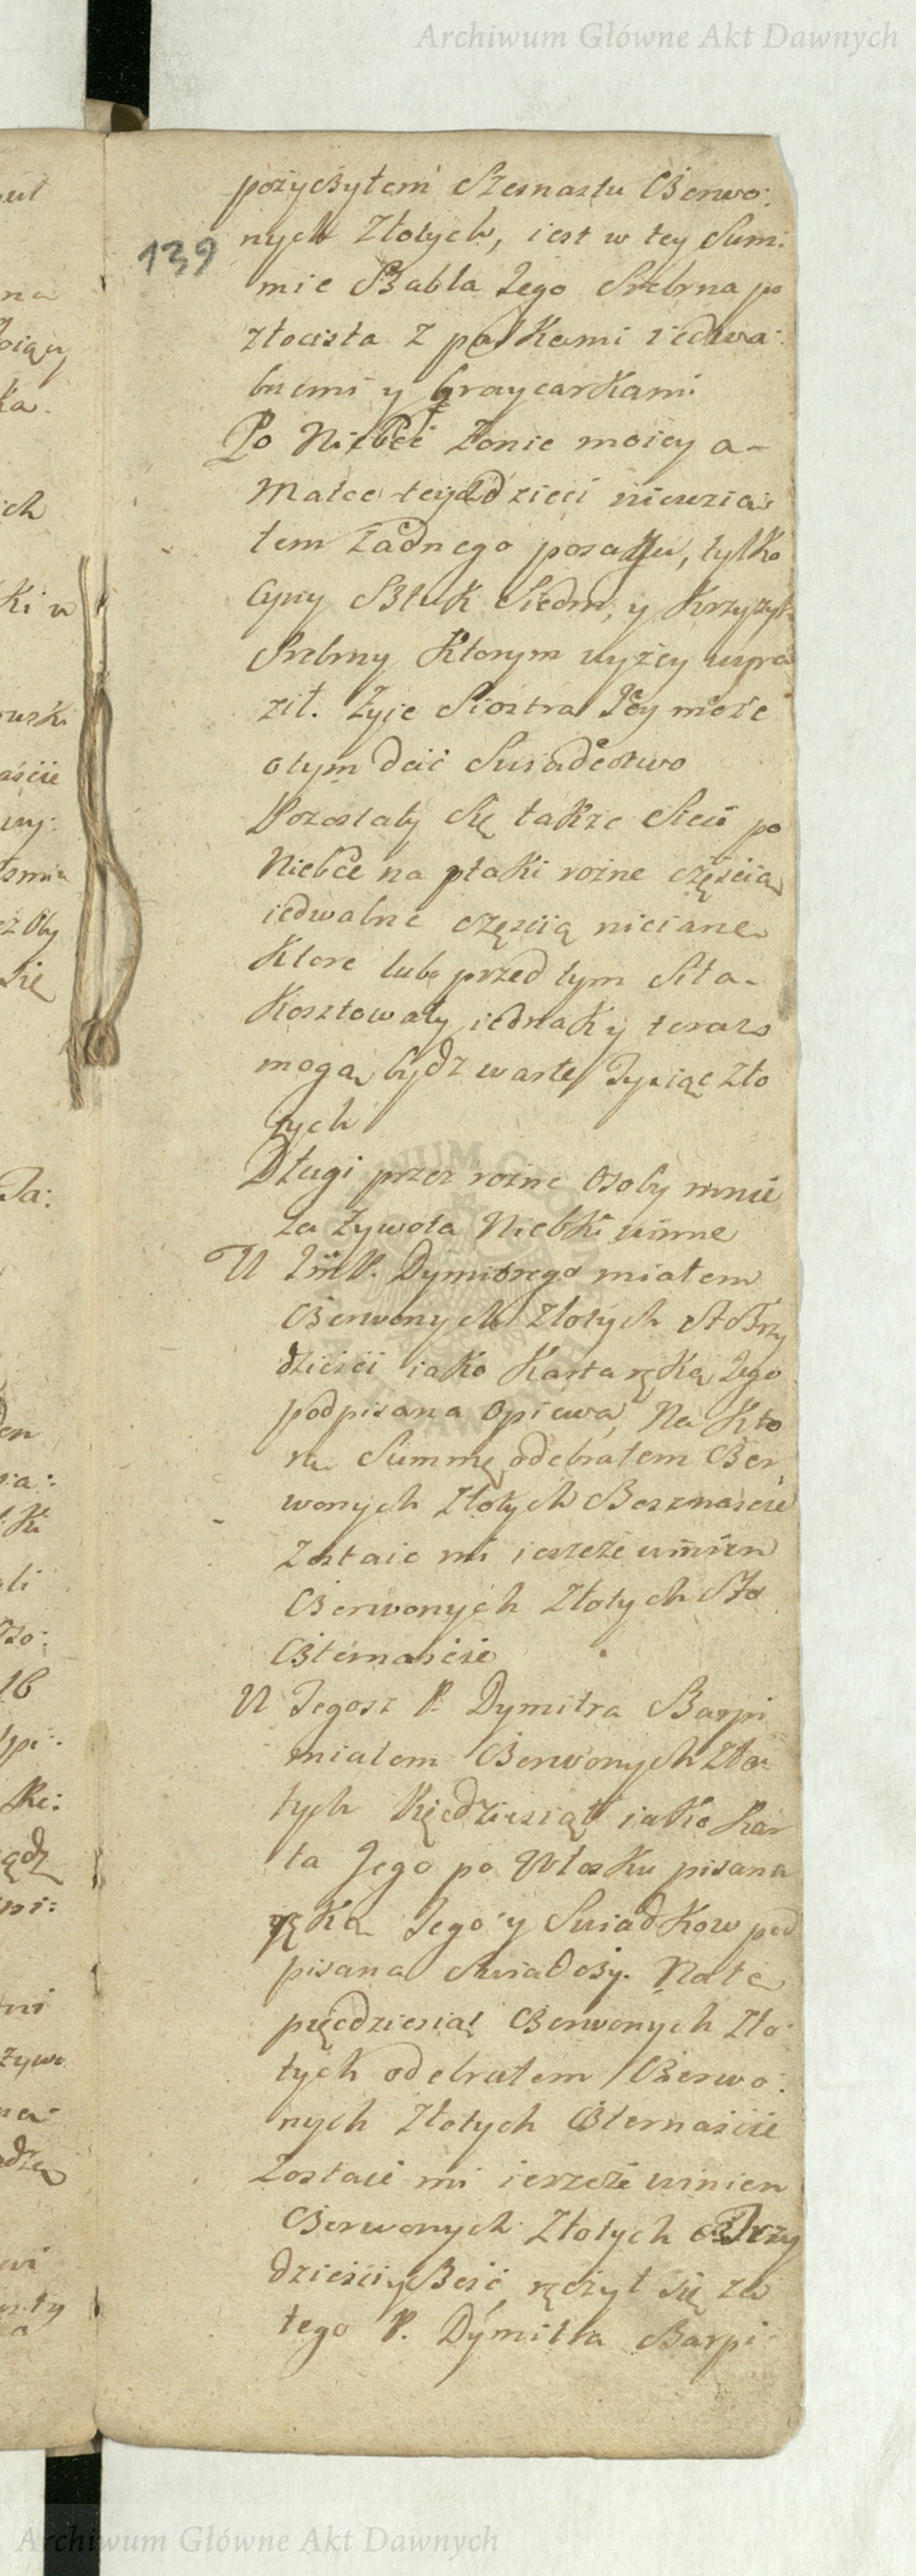 Archiwum Główne Akt Dawnych
pożyczyłem Szesnastu Czerwo:
139
nych Złotych, iest w tey Sum:
mie Szabla Jego Srebrna po
złocista z paskami iedwa:
bnemi y braycarkami
Po Niebce Żonie moiey a
Matce tey dzieci niewzia:
łem żadnego posagu, tylko
Cyny Sztuk Siedm, y Krzyżyk
Srebrny Ktorym wyżey wyra
ził. Żyje Siostra Jey może
otym dać Swiadectwo
Pozostały Się także Sieci po
Niebce na ptaki rożne częścią
iedwabne częścią niciane
Ktore lubo przed tym Siła
Kosztowały, iednak y teraz
mogą bydz warte Tysiąc Zło
tych
Długi przez rożne Osoby mnie
za żywota Niebki winne
U ImP. Dymitrego miałem
Czerwonych Złotych StoTrzy
dzieści iako Karta ręką Jego
podpisana Opiewa, Na Kto
rą Summę odebrałem Czer
wonych Złotych Szesnaście
Zostaie mi ieszcze winien
Czerwonych Złotych Sto
Czternaście
U Tegosz P. Dymitra Barpi
miałem Czerwonych Zło:
tych Pięćdziesiąt iako Kar
ta Jego po Włosku pisana
ręką Jego y Swiadkow pod
pisana Swiadczy. Na te
pięcdziesiąt Czerwonych Zło:
tych odebrałem Czerwo:
nych Złotych Czternaście
Zostaie mi ieszcze winien
Czerwonych Złotych Trzy
dzieści y Sześć, ręczył się za
tego P. Dymitra Barpi
Archiwum Główne Akt Dawnych